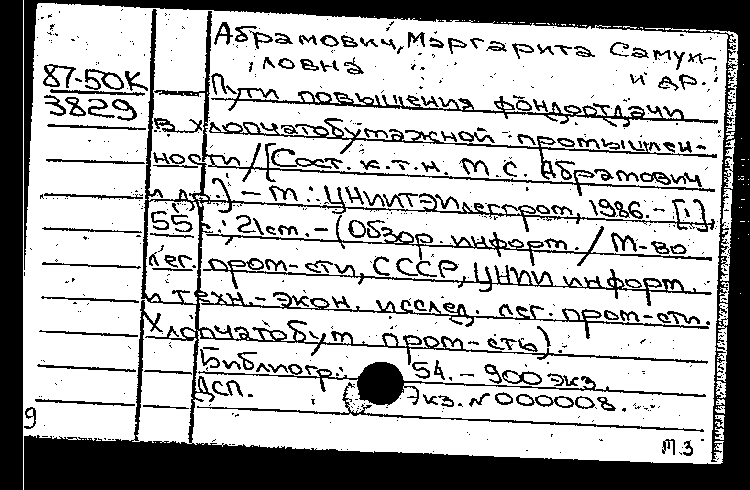 Абрамович, Маргарита Самуи-
ловна и др.
87-50К
3829
Пути повышения фондоотдачи
в хлопчатобумажной промышлен-
ности / [Сост. к.т.н. М. С. Абрамович
и др.] – М : ЦНИИТЭИлегпром, 1986. – [1],
55 с.; 21 см. – (Обзор. информ. / М-во
лег. пром-сти, СССР, ЦНИИ информ.
и техн.-экон. исслед. лег. пром-сти.
Хлопчатобум. пром-сть).
Библиогр.: 54. – 900 экз.
ДСП. Экз. N 000008.
9
м.з